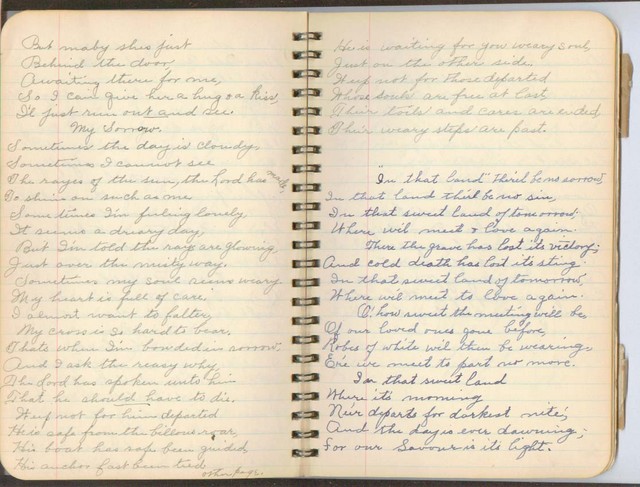 But maby shes just
Behind the door,
Awaiting there for me,
So I can give her a hug o a kiss,
I'll just run out and see.
My Sorrow.
Sometimes the day is cloudy,
Sometimes I cannot see
The rayes of the sun, the Lord has made,
To shine on such as me
Sometimes I'm feeling lonely
It seems a dreary day;
But I'm told the rays are glowing,
Just over the misty way.
Sometimes my soul seems weary
My heart is full of care
I almost want to falter,
My cross is so hard to bear.
Thats when I'm bowded in sorrow,
And I ask the reasy why,
The Lord has spoken unto him
That he should have to die.
Weep not for him depected
He is safe from the billows roar,
His boat has safe been guided
His anchor fast been tied
other page.
He is waiting for you weary soul,
Just on the other side,
Weep not for those departed
Whose souls are free at last,
Their toils and cares are ended,
Their weary steps are past.
"In that land" their'l be no sorrow,
In that land thei'l be no sin,
In that sweet land of tomorrow;
Where we'l meet to love again.
There the grave has lost its victory;
And cold death has lost its sting.
In that sweet land of tomorrow,
Where we'l meet to love again.
O' how sweet the meeting will be
Of our loved ones gone before,
Robes of white we'l then be wearing,
E're we meet to part no more.
In that sweet land
Where it's morning
Ne'er departs for darkest nite,
And the day is ever dawning;
For our Savour is it's light.